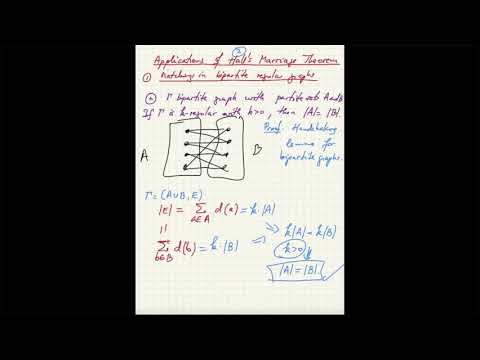 2
Applications of Hall's Marriage Theorem
① Matchings in bipartite regular graphs
ⓐ Γ bipartite graph with partite sets A and B
If Γ is k-regular with k>0, then |A| = |B|.
Proof. Handshaking
lemma for
bipartite graphs.
A
B
Γ = (A∪B, E)
|E| = Σ d(a) = k·|A|
a∈A
||
⇒ k|A| = k|B|
Σ d(b) = k·|B| ⇒
b∈B
k>0 ⇓
|A| = |B|.